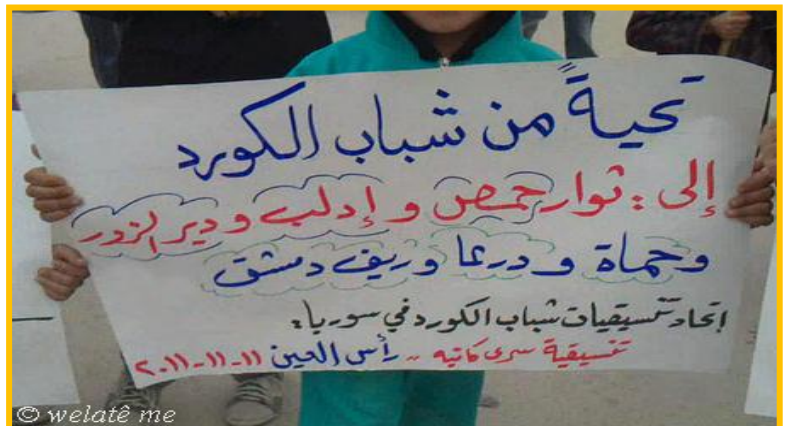 تحيةً من شباب الكورد
إلى : ثوار حمص و إدلب و دير الزور
و حماة و درعا و ريف دمشق
إتحاد تنسيقيات شباب الكورد في سوريا :
تنسيقية سرى كانيه .. رأس العين ١١-١١-٢٠١١
© welatê me